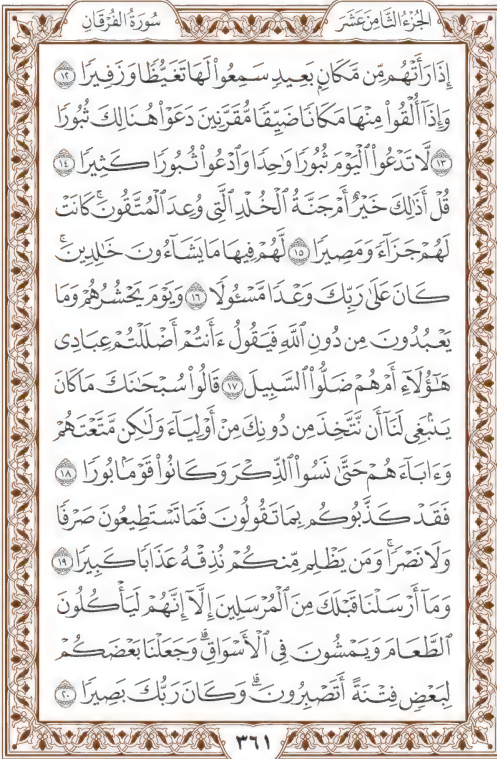 الجُزْءُ الثَّامِنَ عَشَرَ
سُورَةُ الفُرْقَانِ
إِذَا رَأَتْهُم مِّن مَّكَانِۭ بَعِيدٖ سَمِعُواْ لَهَا تَغَيُّظٗا وَزَفِيرٗا ١٢
وَإِذَآ أُلْقُواْ مِنْهَا مَكَانٗا ضَيِّقٗا مُّقَرَّنِينَ دَعَوْاْ هُنَالِكَ ثُبُورٗا
١٣ لَّا تَدْعُواْ ٱلْيَوْمَ ثُبُورٗا وَٰحِدٗا وَٱدْعُواْ ثُبُورٗا كَثِيرٗا ١٤
قُلْ أَذَٰلِكَ خَيْرٌ أَمْ جَنَّةُ ٱلْخُلْدِ ٱلَّتِي وُعِدَ ٱلْمُتَّقُونَۚ كَانَتْ
لَهُمْ جَزَآءٗ وَمَصِيرٗا ١٥ لَّهُمْ فِيهَا مَا يَشَآءُونَ خَٰلِدِينَۚ
كَانَ عَلَىٰ رَبِّكَ وَعْدٗا مَّسْـُٔولٗا ١٦ وَيَوْمَ يَحْشُرُهُمْ وَمَا
يَعْبُدُونَ مِن دُونِ ٱللَّهِ فَيَقُولُ ءَأَنتُمْ أَضْلَلْتُمْ عِبَادِي
هَٰٓؤُلَآءِ أَمْ هُمْ ضَلُّواْ ٱلسَّبِيلَ ١٧ قَالُواْ سُبْحَٰنَكَ مَا كَانَ
يَنۢبَغِي لَنَآ أَن نَّتَّخِذَ مِن دُونِكَ مِنْ أَوْلِيَآءَ وَلَٰكِن مَّتَّعْتَهُمْ
وَءَابَآءَهُمْ حَتَّىٰ نَسُواْ ٱلذِّكْرَ وَكَانُواْ قَوْمَۢا بُورٗا ١٨
فَقَدْ كَذَّبُوكُم بِمَا تَقُولُونَ فَمَا تَسْتَطِيعُونَ صَرْفٗا
وَلَا نَصْرٗاۚ وَمَن يَظْلِم مِّنكُمْ نُذِقْهُ عَذَابٗا كَبِيرٗا ١٩
وَمَآ أَرْسَلْنَا قَبْلَكَ مِنَ ٱلْمُرْسَلِينَ إِلَّآ إِنَّهُمْ لَيَأْكُلُونَ
ٱلطَّعَامَ وَيَمْشُونَ فِي ٱلْأَسْوَاقِۗ وَجَعَلْنَا بَعْضَكُمْ
لِبَعْضٖ فِتْنَةً أَتَصْبِرُونَۗ وَكَانَ رَبُّكَ بَصِيرٗا ٢٠
٣٦١